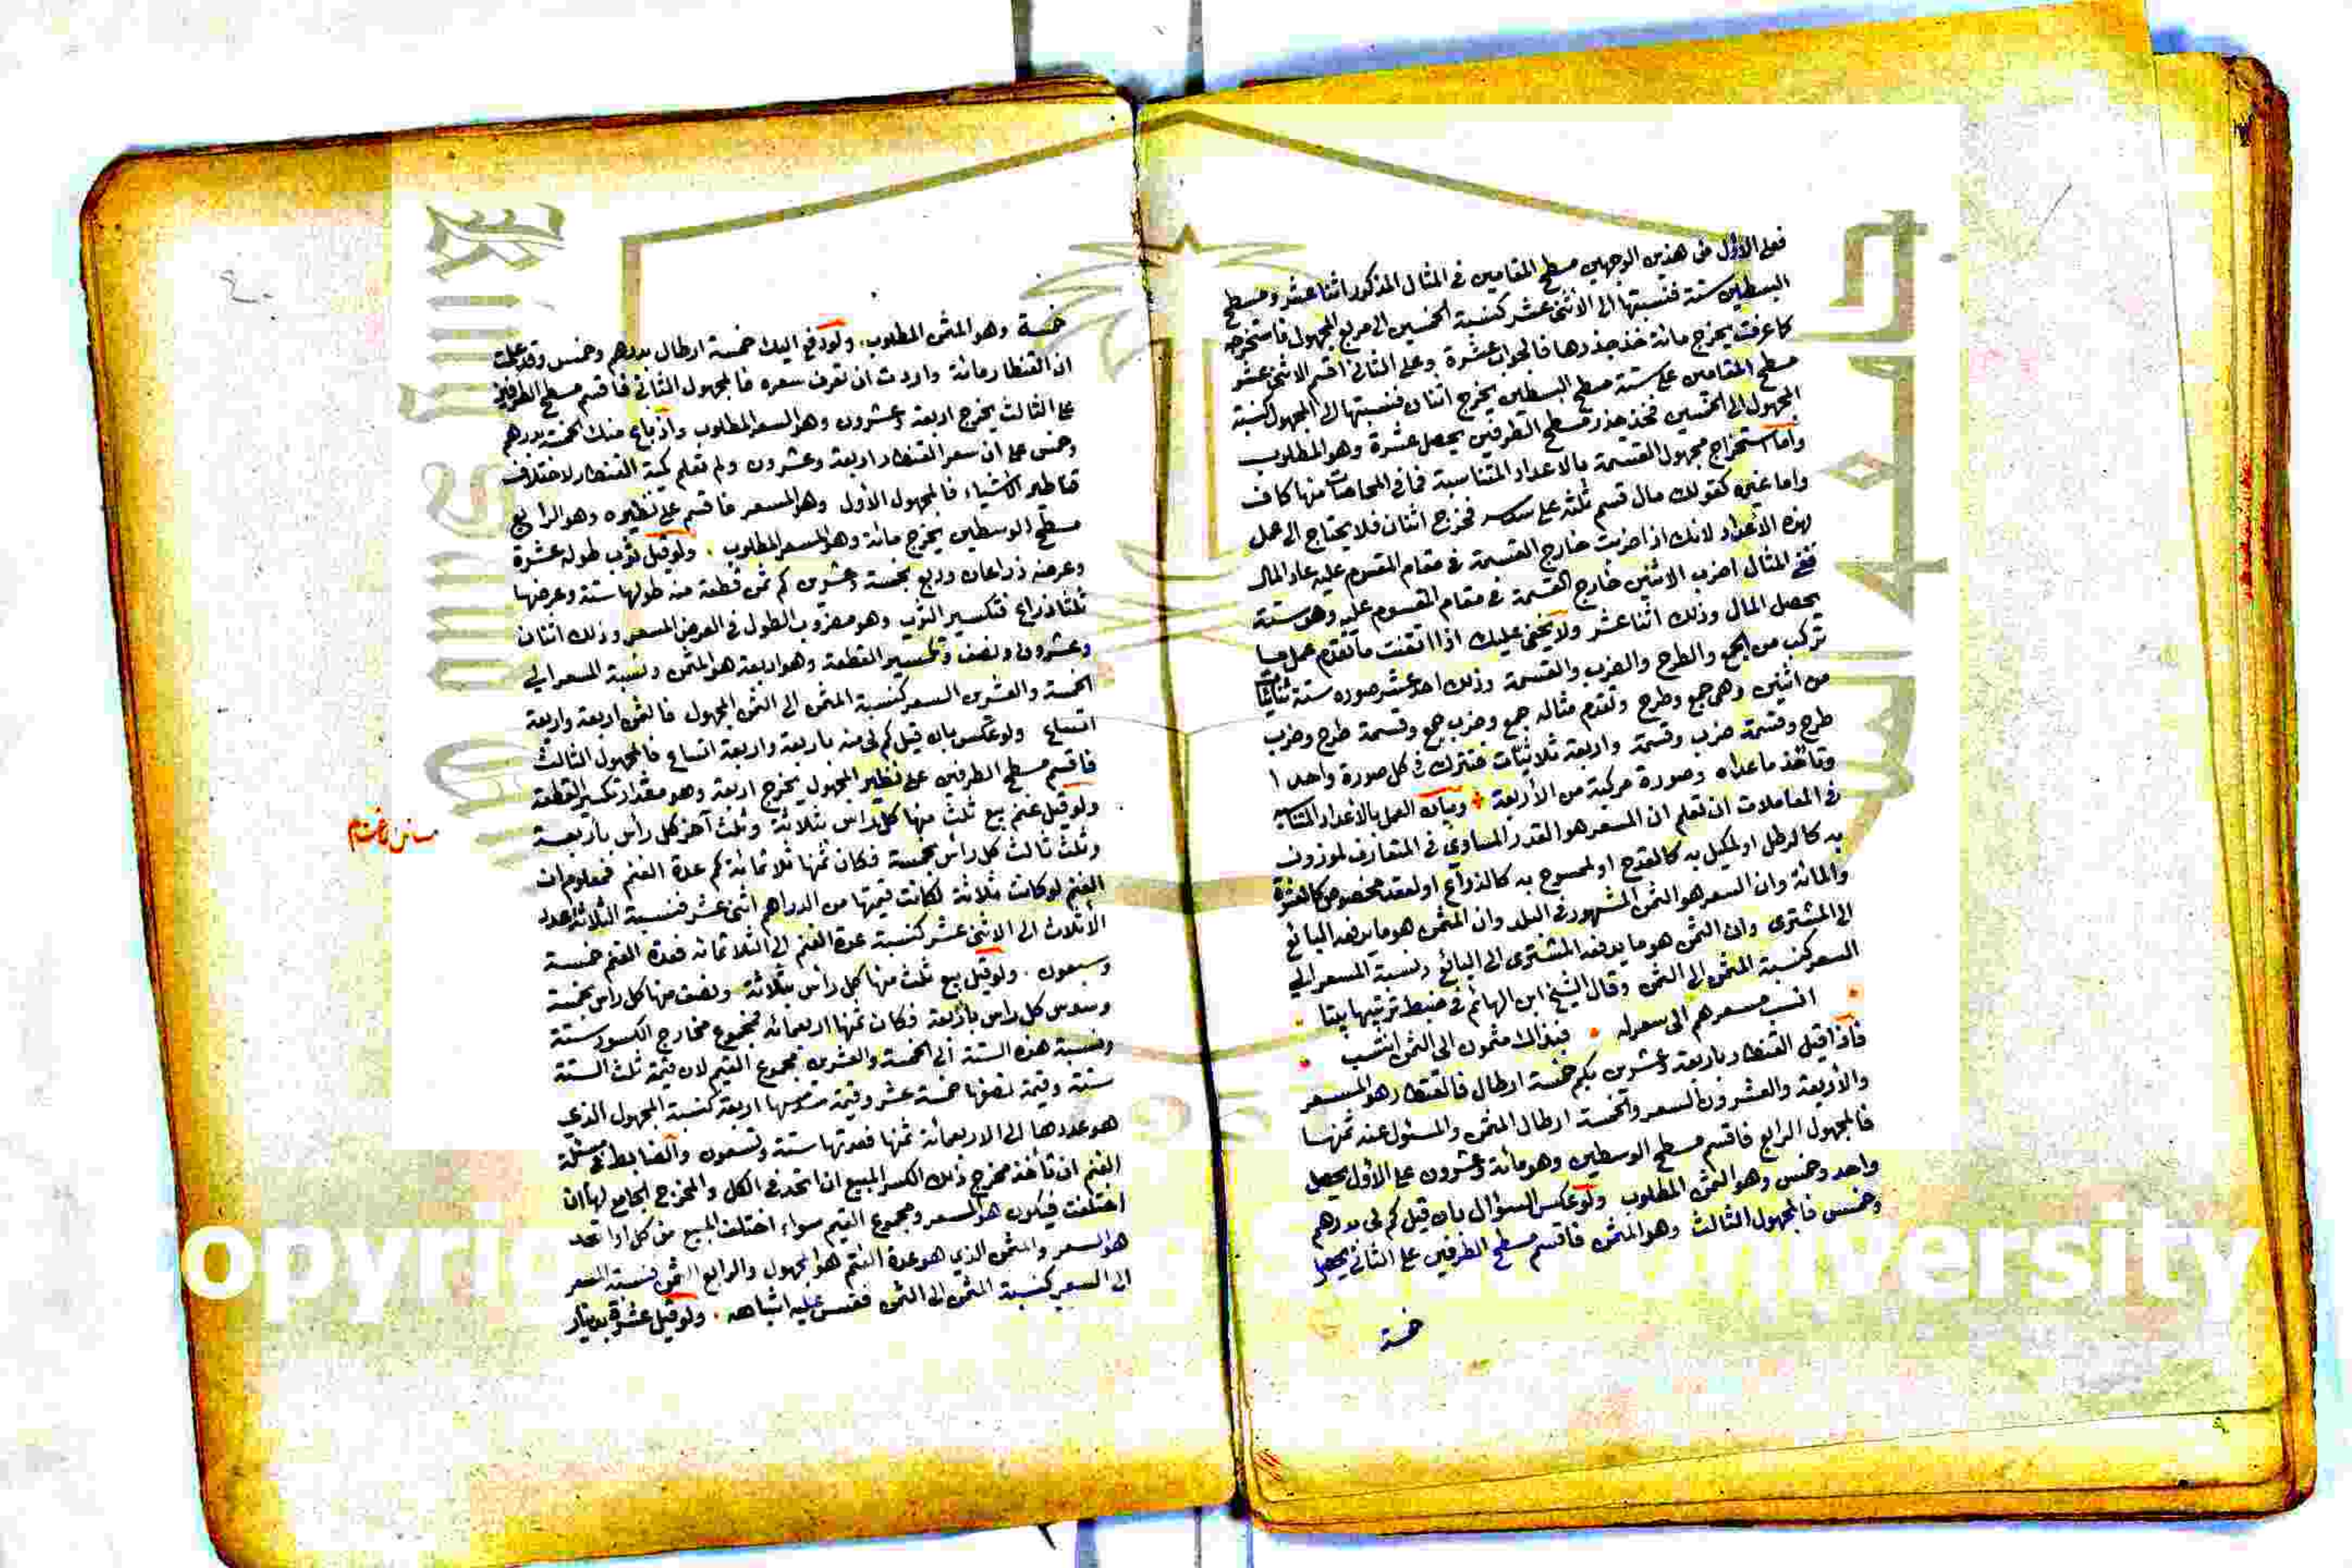 فعلى الاول من هذين الوجهين مسطح المقامين في المثال المذكور اثنا عشر ومسطح
البسطين ستة فنسبتها الى الاثنى عشر كنسبة الخمسين الى مربع المجهول فاستخرجه
كما عرفت يخرج مائة خذ جذرها فالجواب عشرة وعلى الثاني اقسم الاثنى عشر
مسطح المقامين على ستة مسطح البسطين يخرج اثنان فنسبتها الى المجهول كنسبة
المجهول الى الخمسين فخذ جذر مسطح الطرفين يحصل عشرة وهو المطلوب
واما استخراج مجهول القسمة بالاعداد المتناسبة فما في المحاصات منها كاف
واما غيره كقولك مال قسم ثلثه على فخرج اثنان فلا يحتاج الى عمل
بهذه الاعداد لانك اذا ضربت خارج القسمة في مقام المقسوم عليه عاد المال
ففي المثال اضرب الاثنين خارج القسمة في مقام المقسوم عليه وهو ستة
يحصل المال وذلك اثنا عشر ولا يخفى عليك اذا اتقنت ما تقدم عمل ما
تركب من الجمع والطرح والضرب والقسمة وذلك احد عشر صوره ستة ثنائيات
من اثنين وهي جمع وطرح وتقدم مثاله جمع وضرب جمع وقسمة طرح وضرب
طرح وقسمة ضرب وقسمة واربعة ثلاثيات فتترك في كل صورة واحدا
وتأخذ ما عداه وصورة مركبة من الأربعة وبيان العمل بالاعداد المتناسبة
في المعاملات ان تعلم ان المسعر هو القدر المساوي في المتعارف لموزون
به كالرطل او لمكيل به كالقدح او لممسوح به كالذراع او لعقد مخصوص كالعشرة
والمائة وان السعر هو الثمن المشهور في البلد وان المثمن هو ما يدفعه البائع
الى المشترى وان الثمن هو ما يدفعه المشترى الى البائع ونسبة المسعر الى
السعر كنسبة المثمن الى الثمن وقال الشيخ ابن الهائم في ضبط ترتيبها بيتا
انسب مسعرهم الى سعر له فبذلك مثمون الى الثمن انتسب
فاذا قيل القنطار باربعة وعشرين بكم خمسة ارطال فالقنطار هو المسعر
والأربعة والعشرون السعر والخمسة ارطال المثمن والمسئول عنه ثمنها
فالمجهول الرابع فاقسم مسطح الوسطين وهو مائة وعشرون على الأول يحصل
واحد وخمس وهو الثمن المطلوب ولو عكس السؤال بان قيل كم لي بدرهم
وخمس فالمجهول الثالث وهو المثمن فاقسم مسطح الطرفين على الثاني يحصل
خمسة
٤٠
خمسة وهو المثمن المطلوب ولو دفع اليك خمسة ارطال بدرهم وخمس وقد علمت
ان القنطار مائة واردت ان تعرف سعره فالمجهول الثاني فاقسم مسطح الطرفين
على الثالث يخرج اربعة وعشرون وهو السعر المطلوب واذ باع منك الخمسة بدرهم
وخمس على ان سعر القنطار اربعة وعشرون ولم تعلم كمية القنطار لاختلاف
قناطير الاشياء فالمجهول الأول وهو المسعر فاقسم على نظيره وهو الرابع
مسطح الوسطين يخرج مائة وهو المسعر المطلوب ولو قيل ثوب طوله عشرة
وعرضه ذراعان وربع بخمسة وعشرين كم ثمن قطعة منه طولها ستة وعرضها
ثلثا ذراع فتكسير الثوب وهو مضروب الطول في العرض المسعر وذلك اثنان
وعشرون ونصف وتكسير القطعة وهو اربعة هو المثمن ونسبة المسعر الى
الخمسة والعشرين السعر كنسبة المثمن الى الثمن المجهول فالثمن اربعة واربعة
اتساع ولو عكس بان قيل كم لي منه باربعة واربعة اتساع فالمجهول الثالث
فاقسم مسطح الطرفين على نظير المجهول يخرج اربعة وهو مقدار تكسير القطعة
ولو قيل غنم بيع ثلث منها كل رأس بثلاثة وثلث آخر كل رأس بأربعة
وثلث ثالث كل رأس بخمسة فكان ثمنها ثلاثمائة كم عدة الغنم فمعلوم ان
الغنم لو كانت ثلاثة لكانت قيمتها من الدراهم اثنى عشر فنسبة الثلاثة عدد
الأثلاث الى الاثنى عشر كنسبة عدة الغنم الى الثلاثمائه فعدة الغنم خمسة
وسبعون ولو قيل بيع ثلث منها كل رأس بثلاثة ونصف منها كل راس بخمسة
وسدس كل راس بأربعة فكان ثمنها اربعمائه فمجموع مخارج الكسور ستة
ونسبة هذه الستة الى الخمسة والعشرين مجموع القيم لان قيمة ثلث الستة
ستة وقيمة نصفها خمسة عشر وقيمة سدسها اربعة كنسبة المجهول الذي
هو عددها الى الاربعمائة ثمنها فعدتها ستة وتسعون والضابط في مسئلة
الغنم ان تأخذ مخرج ذلك الكسر المبيع ان اتحد في الكل والمخرج الجامع لها ان
اختلفت فيكون هو المسعر ومجموع القيم سواء اختلف المبيع من كل او اتحد
هو السعر والمثمن الذي هو عدة الغنم هو المجهول والرابع الثمن فنسبة المسعر
الى السعر كنسبة المثمن الى الثمن فقس عليه اشباهه ولو قيل عشرة بدينار
مسائل الاغنام